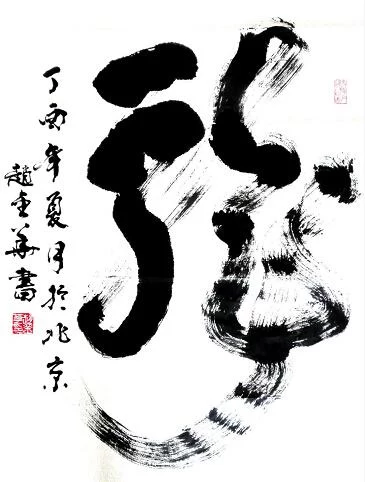 龍
丁酉年夏月於北京
趙金華書